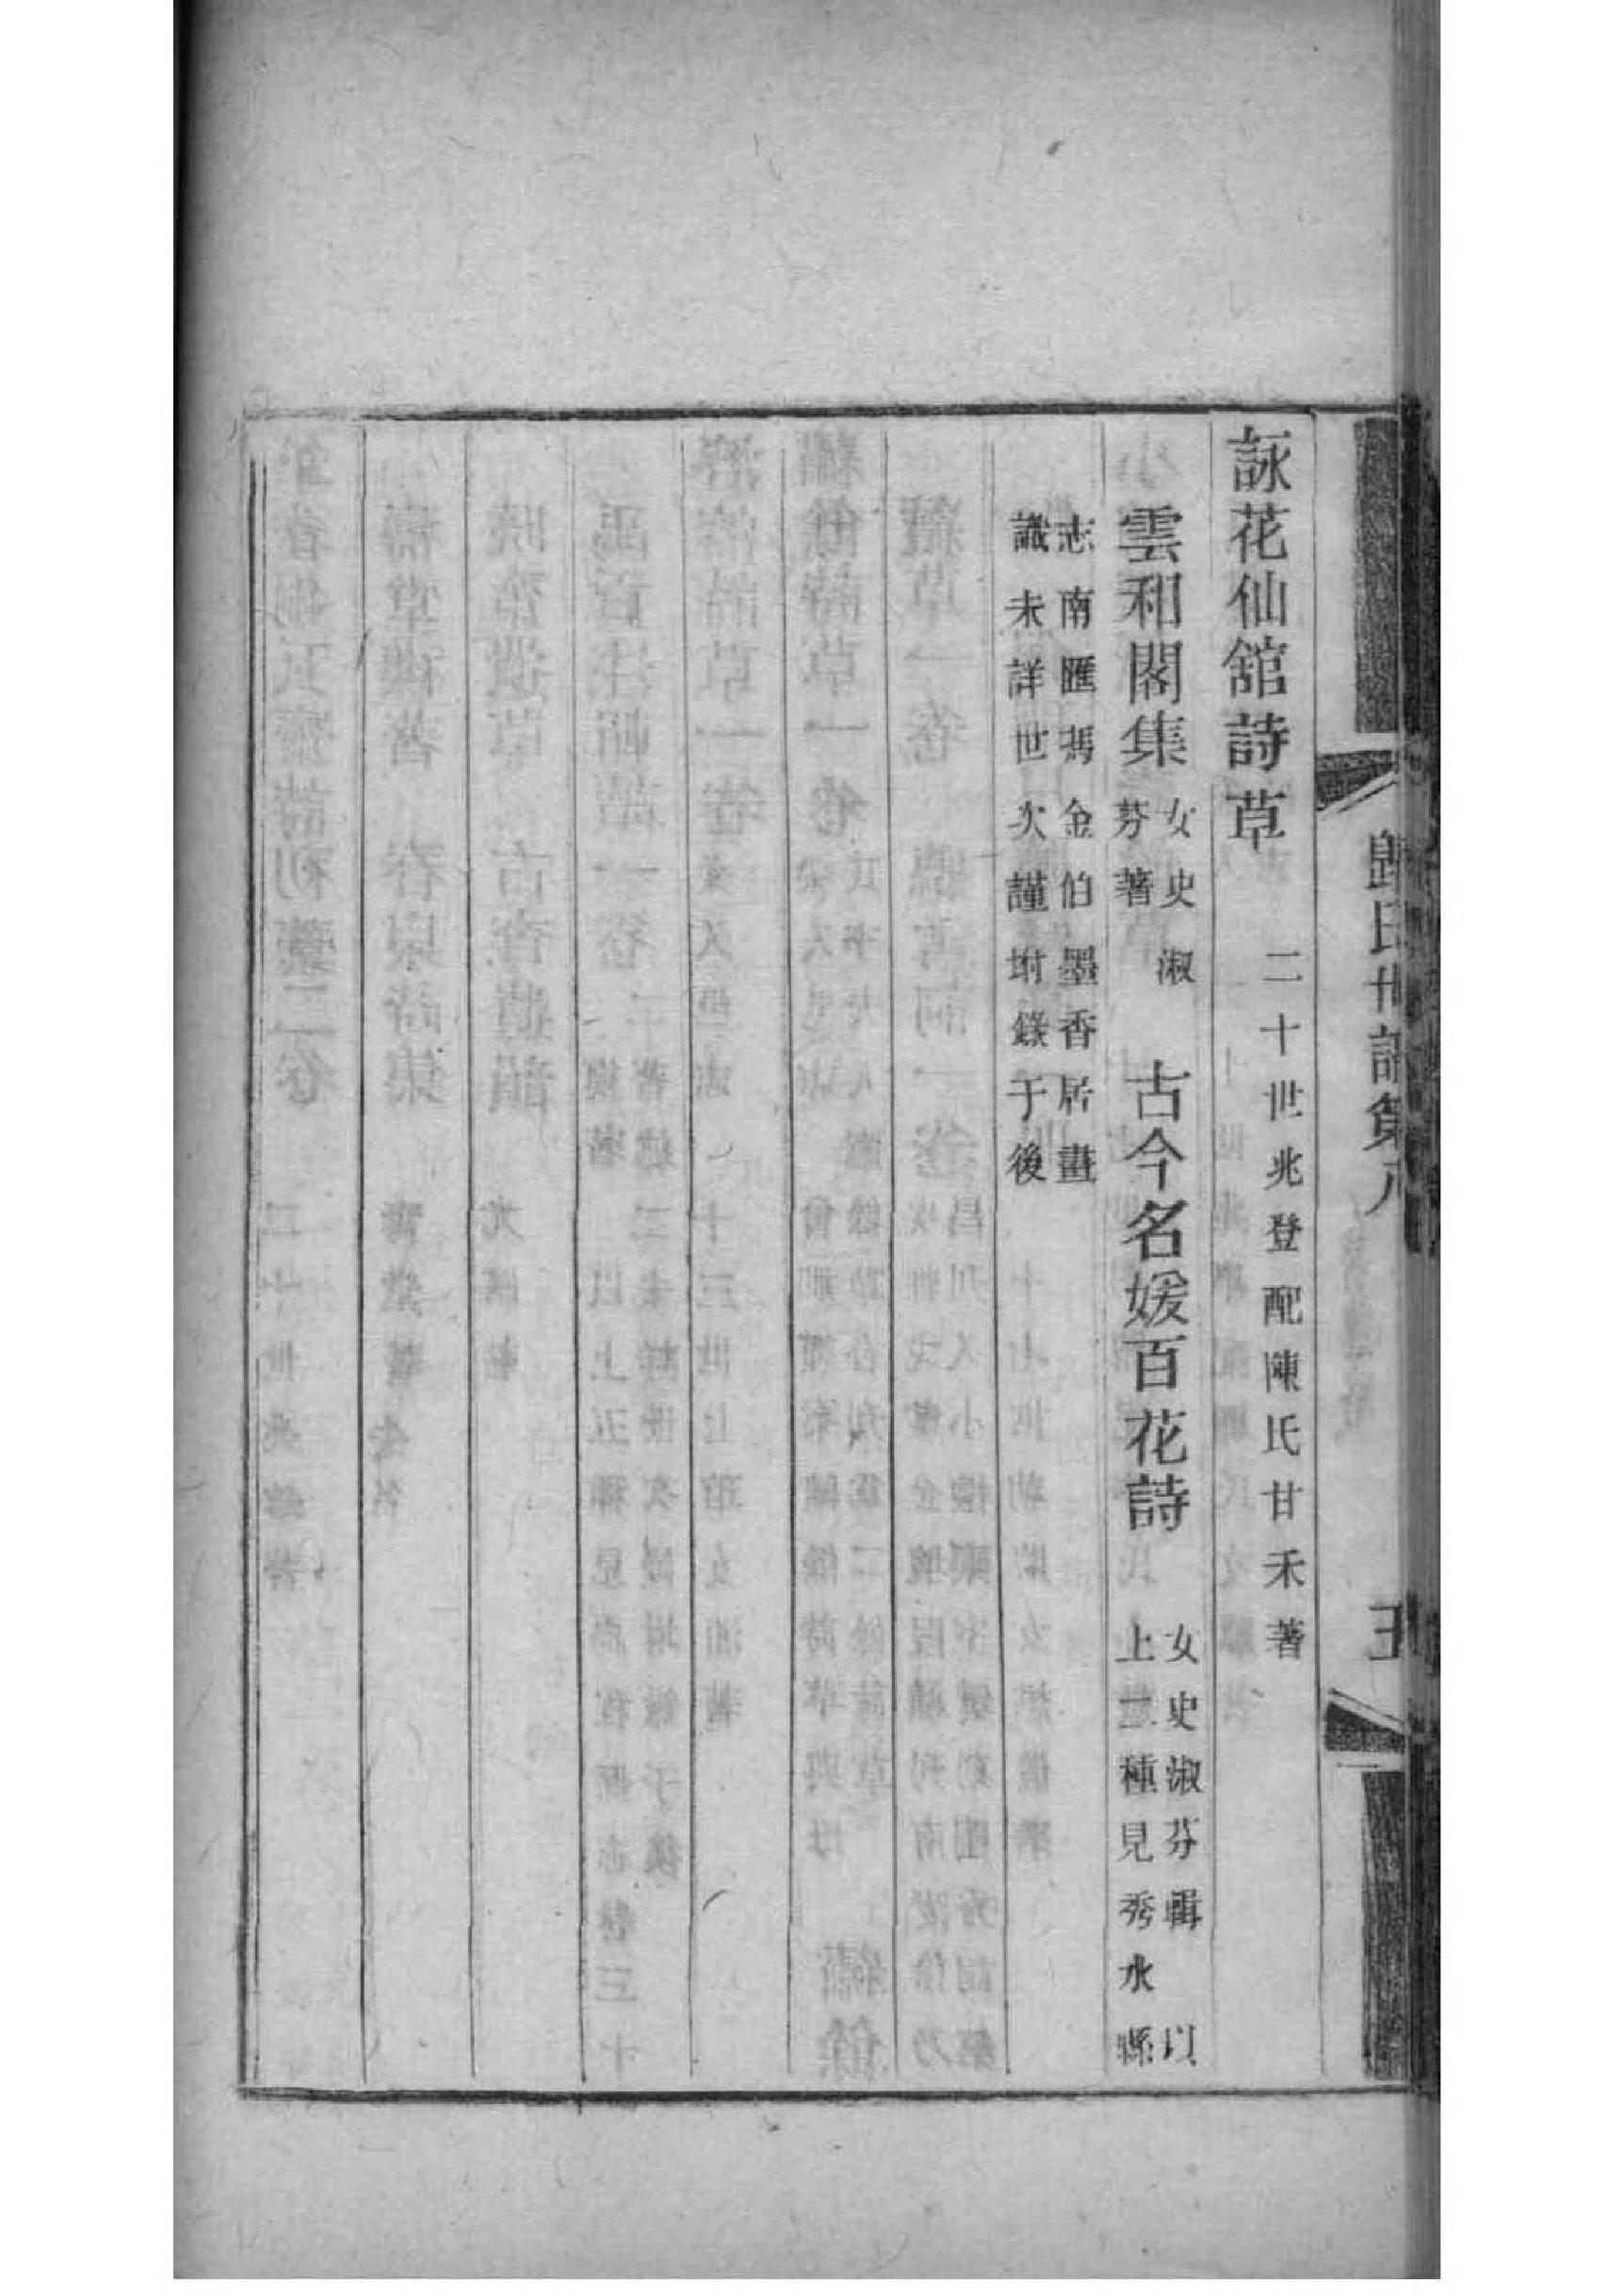 歸氏世譜第八
詠花仙舘詩草 二十世兆登配陳氏甘禾著
雲和閣集 女史 淑
芬著 古今名媛百花詩 女史淑芬輯 以
上二種見秀水縣
志南匯馮金伯墨香居畫
識未詳世次謹坿錄于後